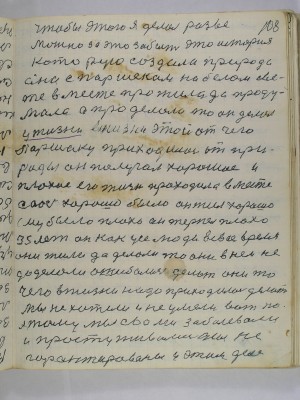 чтобы этого я делал разве 108
можно за это забыт это история
которую создала природа
она с Паршекам на белом све-
те вместе прожила да проду-
мала а проделала то он делал
у жизни жизни этой от чего
Паршеку приходилось от при-
роды он получал хорошае и
плохае его жизнь проходила вместе
само хорошо было он жил хорошо
ему было плохо он терпел плохо
35 лет он как усе люди все все время
они жили да делали то они в ней не
доделали ошибались делат они то
чего в жизни надо приходилос делат
мы не хотели и не умели вот по-
этому мы своми заболевали
и простуживалися мы не
гарантированы и этим дел